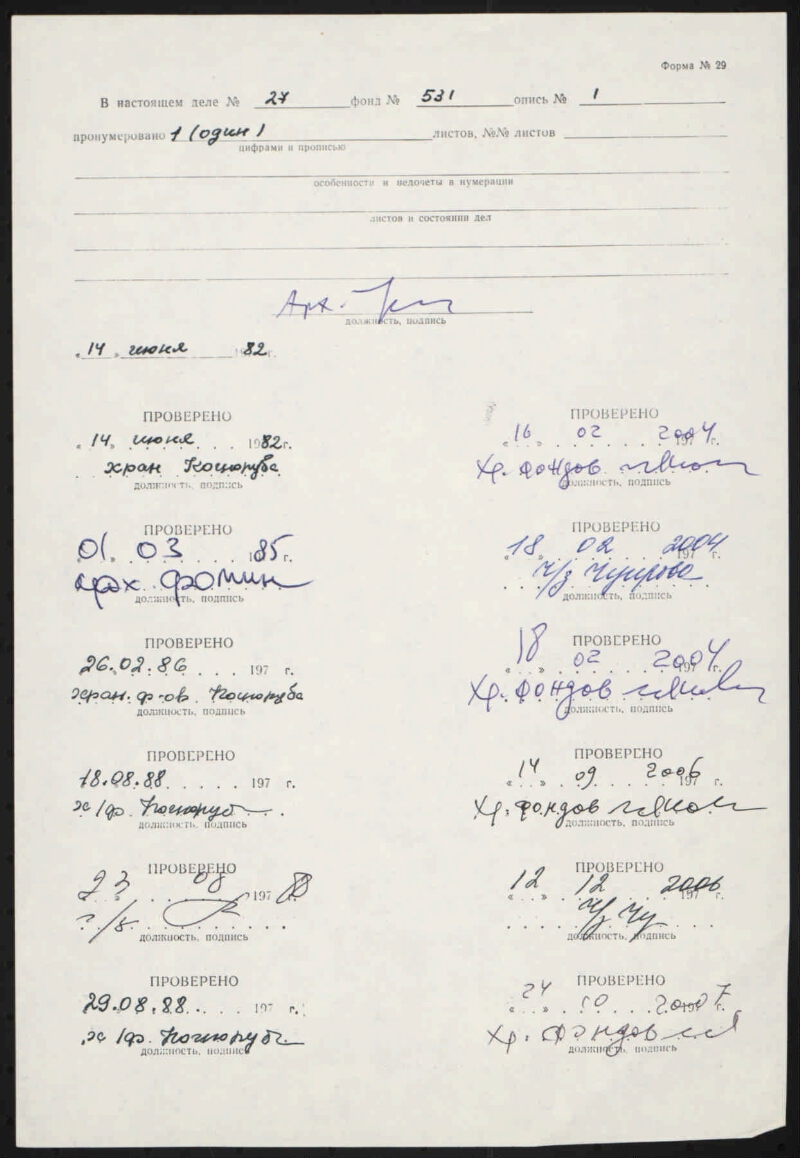 Форма № 29
В настоящем деле № 27 фонд № 531 опись № 1
пронумеровано 1 (один) листов, №№ листов
цифрами и прописью
особенности и недочеты в нумерации
листов и состоянии дел
Арх.
должность, подпись
"14" июня 1982г.
ПРОВЕРЕНО
"14" июня 1982г.
хран Кошоруба
должность, подпись
ПРОВЕРЕНО
01. 03 1985г.
арх. Фомин
должность, подпись
ПРОВЕРЕНО
26.02.86 197 г.
хран. ф-ов
должность, подпись
ПРОВЕРЕНО
18.08.88 197 г.
х/ф.
должность, подпись
ПРОВЕРЕНО
23 08 197 88
должность, подпись
ПРОВЕРЕНО
29.08.88. 197 г.
х/ф.
должность, подпись
ПРОВЕРЕНО
"16" 02 2004 г.
Хр. фондов
должность, подпись
ПРОВЕРЕНО
"18" 02 2004
ч/з
должность, подпись
ПРОВЕРЕНО
"18" 02 2004 г.
Хр. фондов
должность, подпись
ПРОВЕРЕНО
"14" 09 2006 г.
Хр. фондов
должность, подпись
ПРОВЕРЕНО
"12" 12 2006 г.
ч/з Чу
должность, подпись
ПРОВЕРЕНО
"24" 10 2007 г.
Хр. фондов
должность, подпись